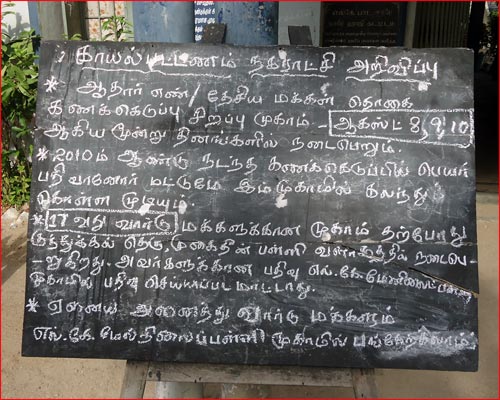 காயல்பட்டணம் நகராட்சி அறிவிப்பு
* ஆதார் எண் / தேசிய மக்கள் தொகை
கணக்கெடுப்பு சிறப்பு முகாம் - ஆகஸ்ட் 8,9,10
ஆகிய மூன்று தினங்களில் நடைபெறும்.
* 2010ம் ஆண்டு நடந்த கணக்கெடுப்பில் பெயர்
பதிவானோர் மட்டுமே இம்முகாமில் கலந்து
கொள்ள முடியும்
* 17 வது வார்டு மக்களுக்கான முகாம் தற்போது
குத்துக்கல் தெரு முகைதீன் பள்ளி வளாகத்தில் நடைபெ-
-றுகிறது. அவர்களுக்கான பதிவு எல்.கே.மேனிலைப்பள்ளி
முகாமில் பதிவு செய்யப்பட மாட்டாது.
* ஏனைய அனைத்து வார்டு மக்களும்
எல்.கே.மேல்நிலைப்பள்ளி முகாமில் பங்கேற்கலாம்